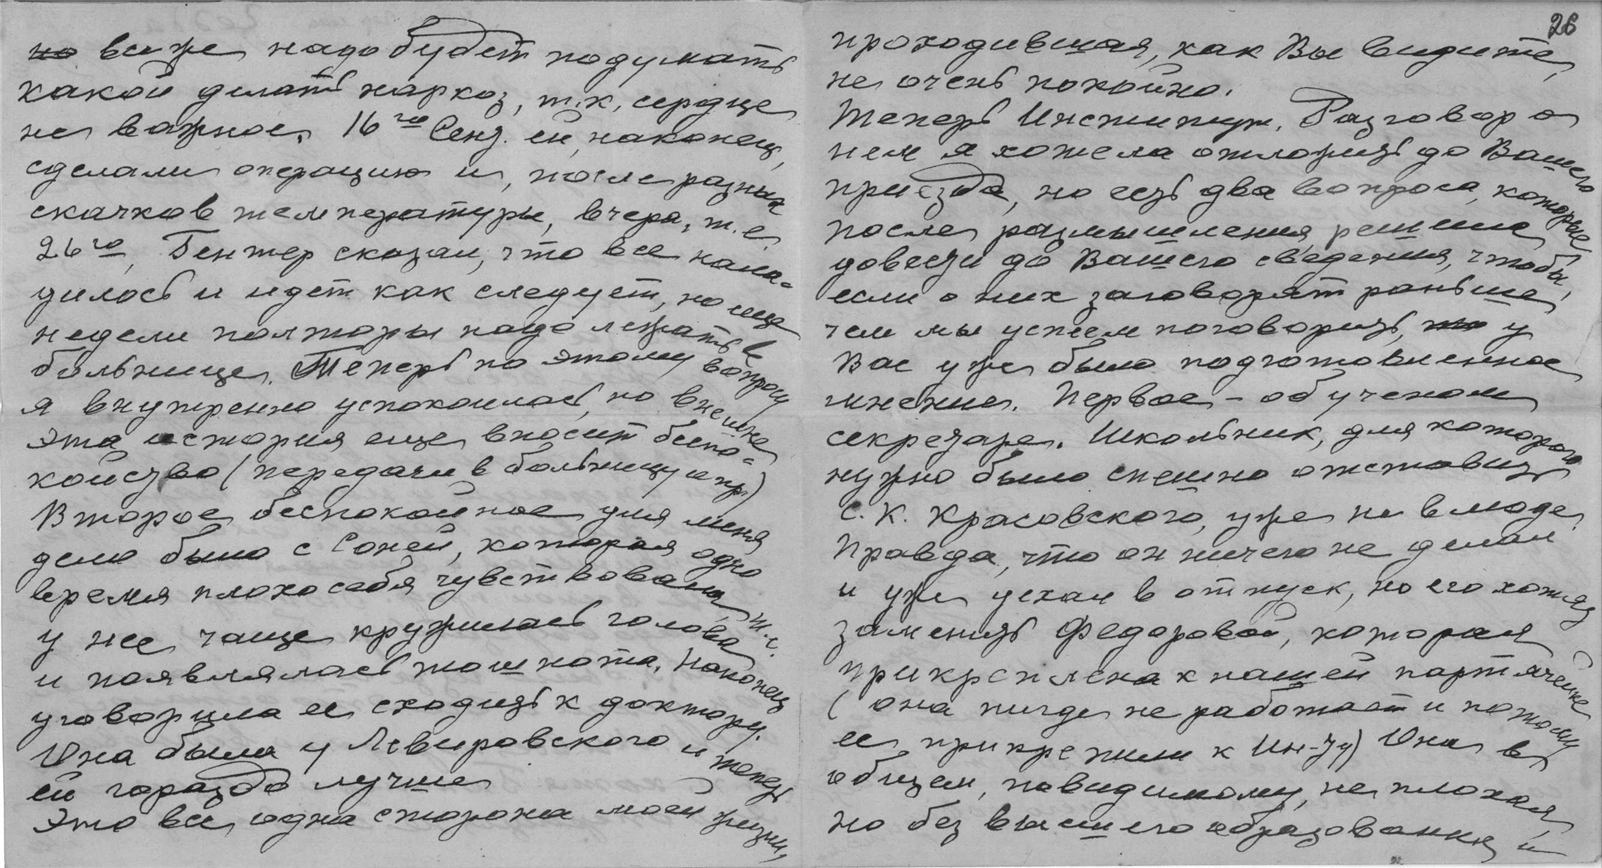 но все же надо будет подумать
какой делать наркоз, т.к. сердце
не важное. 16го Сент. ей, наконец,
сделали операцию и, после разных
скачков температуры, вчера, т.е.
26го, Гентер сказал, что все нала-
дилось и идет как следует, но еще
недели полторы надо лежать в
больнице. Теперь по этому вопросу
я внутренно успокоилась, но внешне
эта история еще вносит беспо-
койство (передачи в больницу и пр)
Второе беспокойное для меня
дело было с Соней, которая одно
время плохо себя чувствовала, т.е.
у нее чаще кружилась голова
и появлялась тошнота. Наконец
уговорила ее сходить к доктору.
Она была у Левировского и теперь
ей гораздо лучше
Это все одна сторона моей жизни,
26
проходившая, как Вы видите,
не очень покойно.
Теперь Институт. Разговор о
нем я хотела отложить до Вашего
приезда, но есть два вопроса, которые
после размышления, решила
довести до Вашего сведения, чтобы,
если о них заговорят раньше,
чем мы успеем поговорить, то у
Вас уже было подготовленное
мнение. Первое – об ученом
секретаре. Школьник, для которого
нужно было спешно отставить
С. К. Красовского, уже не в моде.
Правда, что он ничего не делал
и уже уехал в отпуск, но его хотят
заменить Федоровой, которая
прикреплена к нашей партячейке
(она нигде не работает и потому
ее прикрепили к Ин-ту) Она в
общем, по видимому, не плохая,
но без высшего образования и